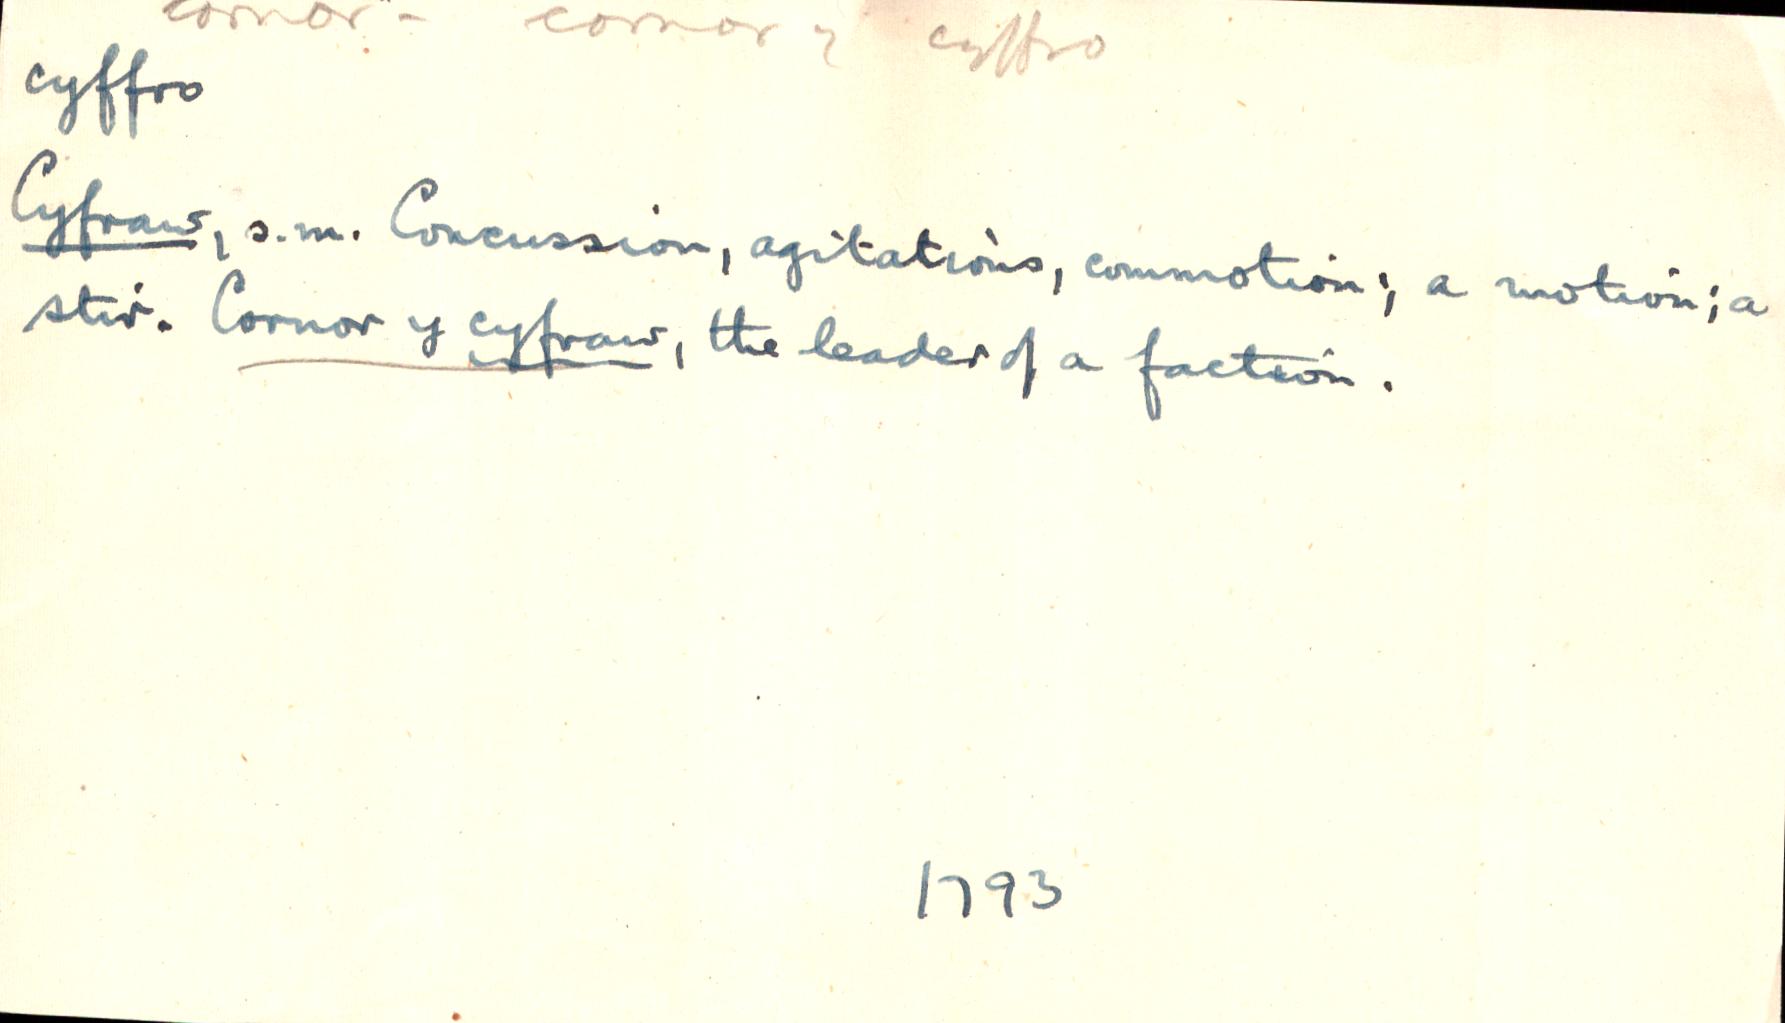 cornor - cornor y cyffro
cyffro
Cyfraw, s.m. Concussion, agitations, commotion; a motion; a
stir. Cornor y cyfraw, the leader of a faction.
1793